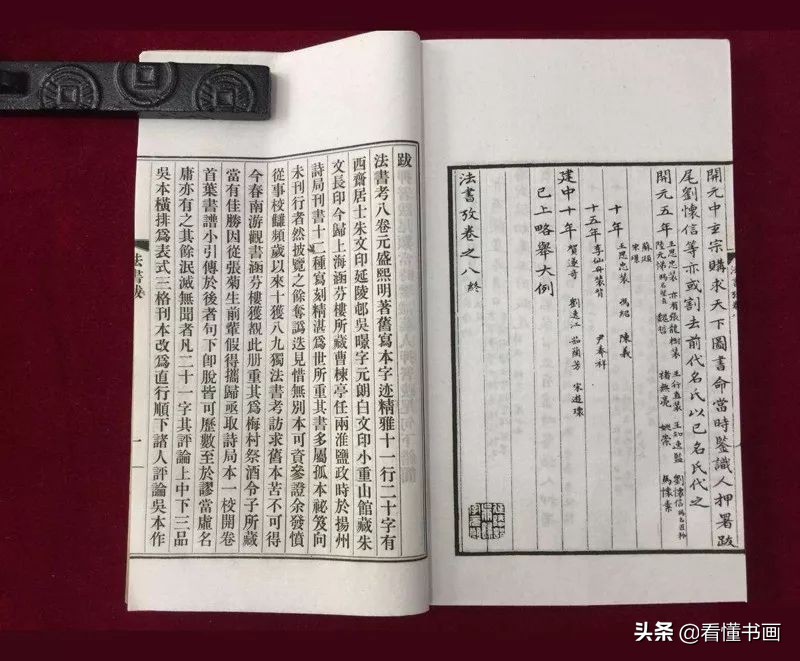 開元中玄宗購求天下圖書命當時鑒識人押署跋
尾劉懷信等亦或割去前代名氏以己名氏代之
開元五年
王思忠裝 亦有張龍樹裝 王行直裝 王知逸監 劉懷信
陸元悌 魏哲 褚無量 姚崇 馬懷素
蘇頲
宋璟
十年 王思忠裝 馮紹 陳義
十五年 李仙舟裝背 尹奉祥
建中十年 賀遂奇 劉逸江 茹蘭芳 宋遊瓌
已上略舉大例
法書攷卷之八終
跋
法書考八卷元盛熙明著舊寫本字迹精雅十一行二十字有
西齋居士朱文印延陵邨吳曔字元朗白文印小重山館藏朱
文長印今歸上海涵芬樓所藏曹楝亭任兩淮鹽政時於揚州
詩局刊書十二種寫刻精湛爲世所重其書多屬孤本祕笈向
未刊行者然披覽之餘奪譌迭見惜無別本可資參證余發憤
從事校讎頻歲以來十獲八九獨法書考訪求舊本苦不可得
今春南游觀書涵芬樓獲覩此册重其爲梅村祭酒令子所藏
當有佳勝因從張菊生前輩假得攜歸亟取詩局本一校開卷
首葉書譜小引傳於後者句下卽脫皆可歷數至於謬當虛名
庸亦有之其餘泯滅無聞者凡二十一字其評論上中下三品
吳本橫排爲表式三格刊本改爲直行順下諸人評論吳本作
法書跋
一
头条 @看懂书画